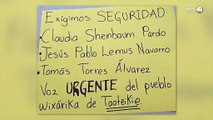 Exigimos SEGURIDAD:
• Claudia Shenbaum Pardo
• Jesús Pablo Lemus Navarro
• Tomás Torres Álvarez
Voz URGENTE del pueblo
wixárika de Tooteikie